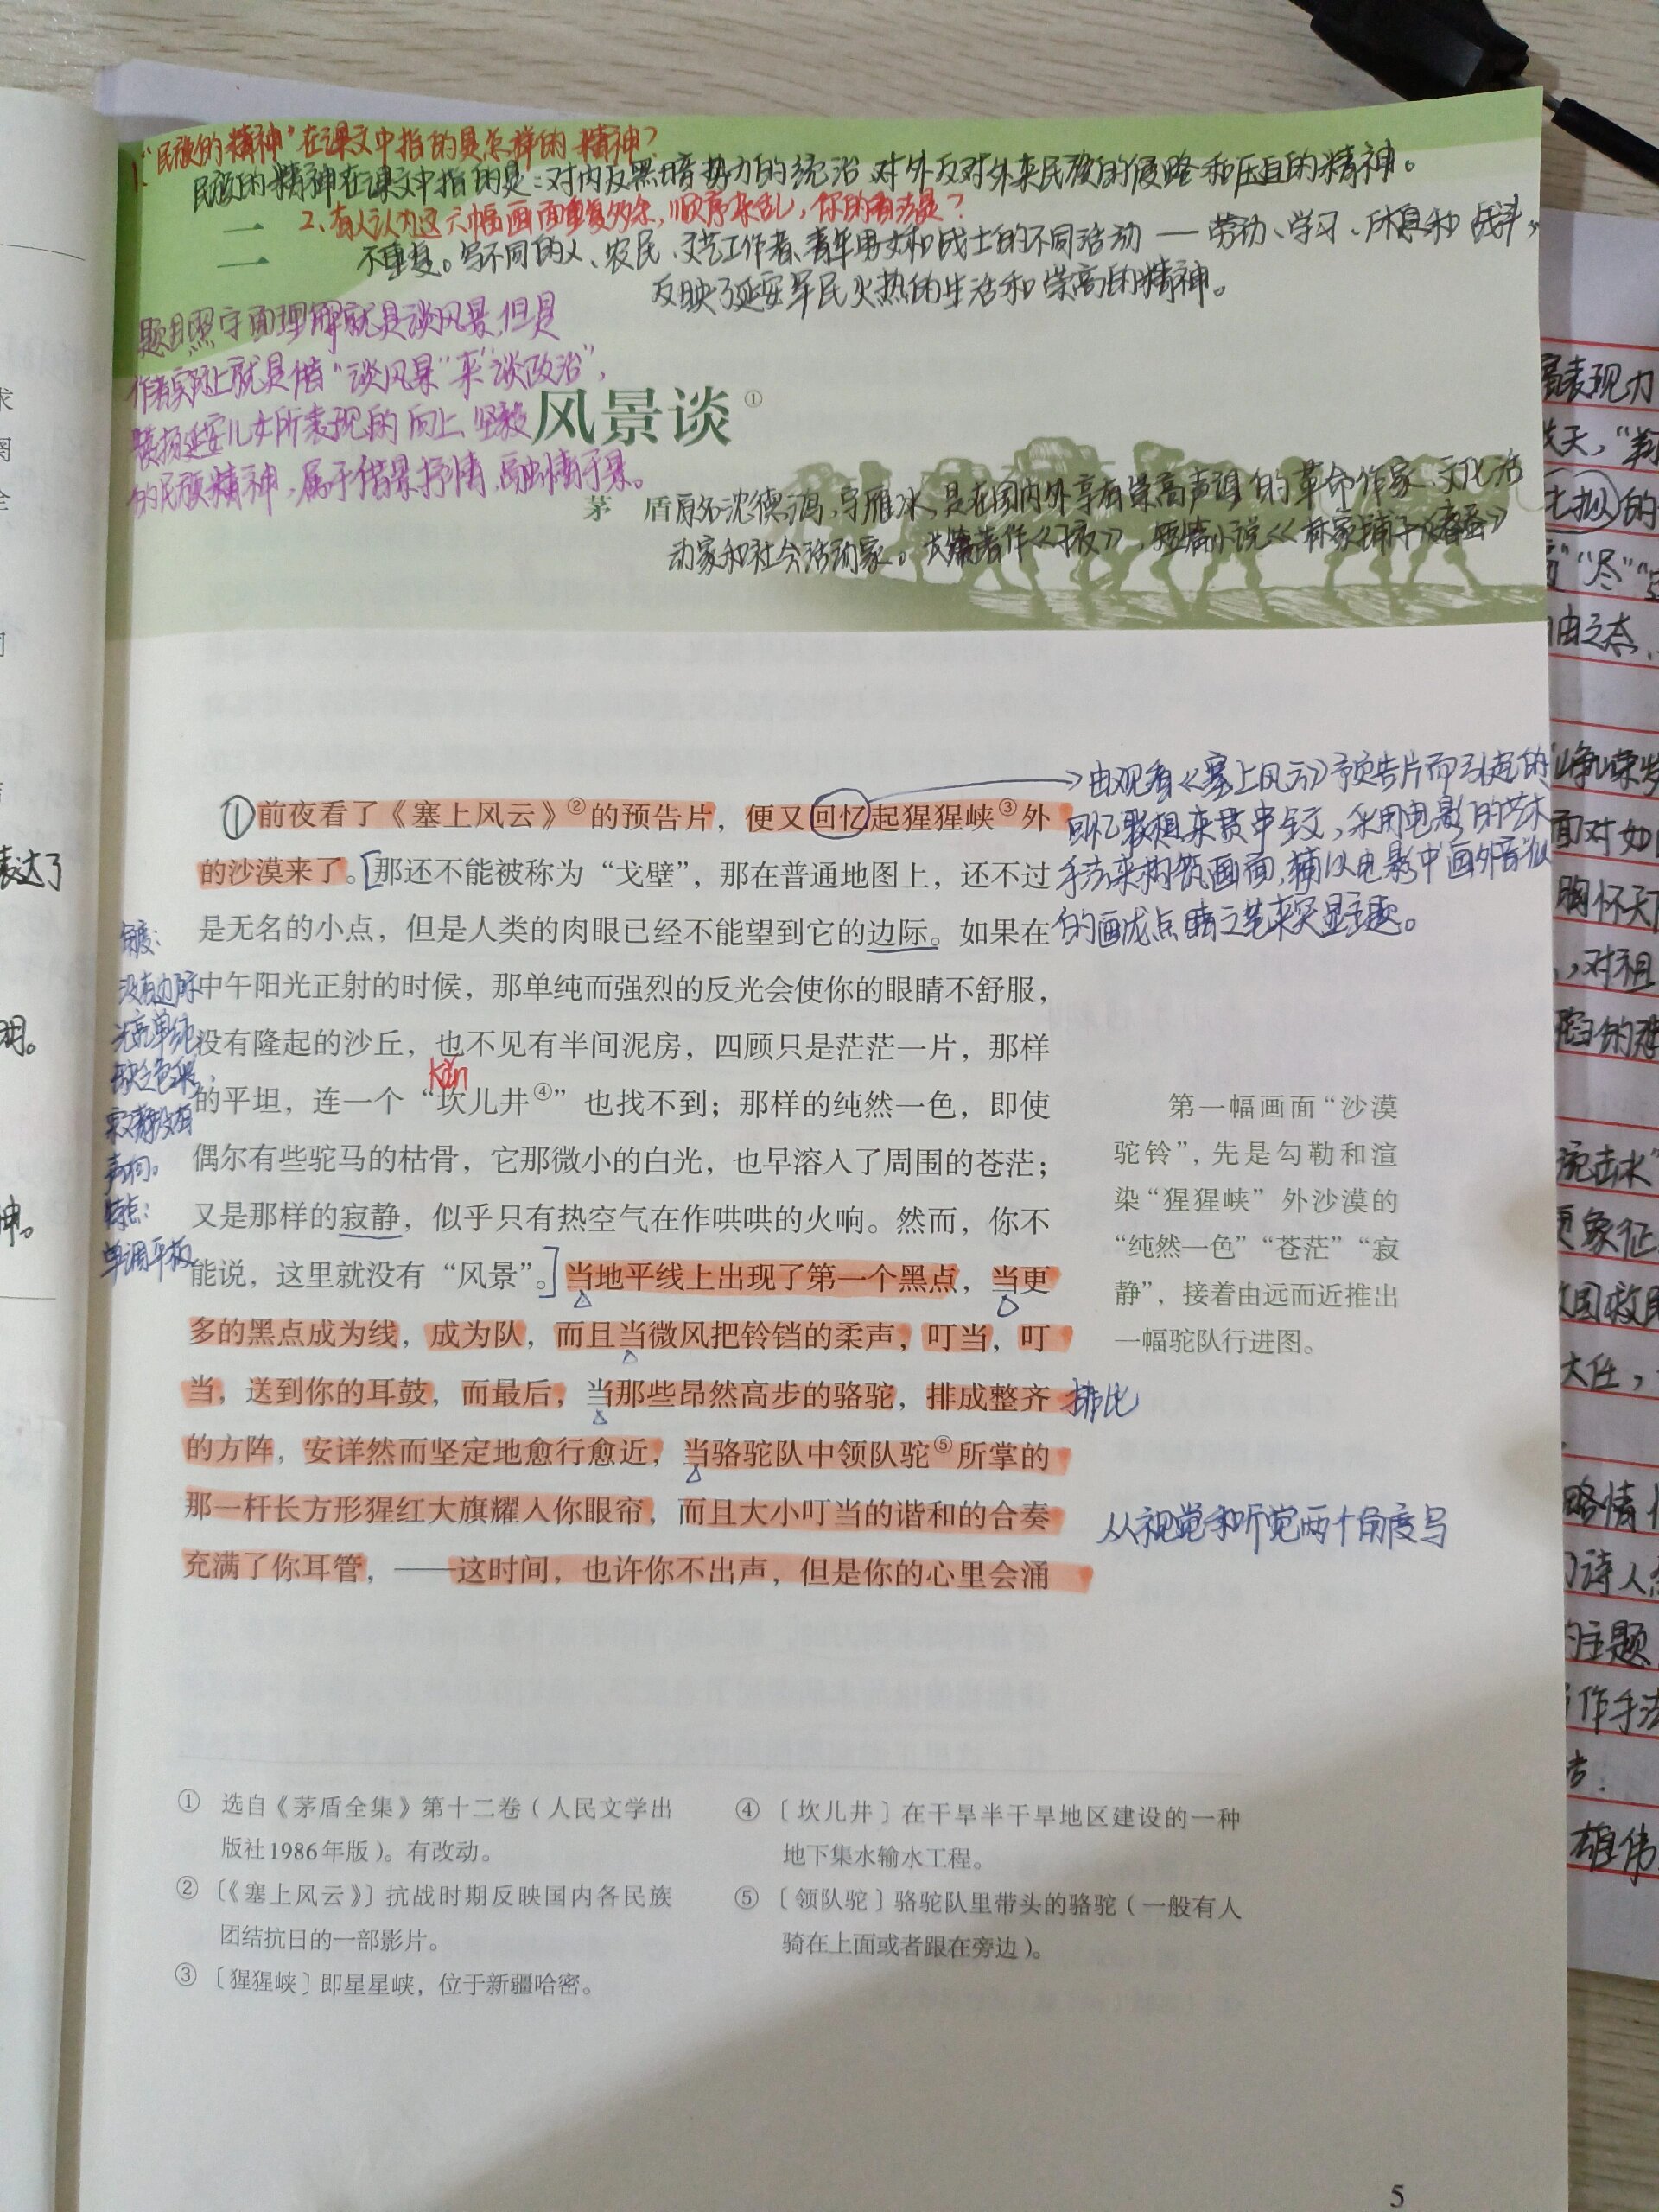 1、“民族的精神”在课文中指的是怎样的精神？
民族的精神在课文中指的是：对内反黑暗势力的统治，对外反对外来民族的侵略和压迫的精神。
2、有人认为这六幅画面重复多余，顺序杂乱，你的看法是？
二
不重复。写不同的人、农民、文艺工作者、青年男女和战士的不同活动——劳动、学习、休息和战斗，
反映了延安军民火热的生活和崇高的精神。
题目照字面理解就是谈风景，但是
作者实际上就是借“谈风景”来“谈政治”，
赞扬延安儿女所表现的向上、坚毅
的民族精神，属于借景抒情，寓情于景。
风景谈①
茅盾
原名沈德鸿，字雁冰，是在国内外享有崇高声望的革命作家、文化活
动家和社会活动家。长篇著作《子夜》，短篇小说《林家铺子》《春蚕》
①前夜看了《塞上风云》②的预告片，便又回忆起猩猩峡③外
的沙漠来了。[那还不能被称为“戈壁”，那在普通地图上，还不过
是无名的小点，但是人类的肉眼已经不能望到它的边际。如果在
中午阳光正射的时候，那单纯而强烈的反光会使你的眼睛不舒服，
没有隆起的沙丘，也不见有半间泥房，四顾只是茫茫一片，那样
kǎn
的平坦，连一个“坎儿井④”也找不到；那样的纯然一色，即使
偶尔有些驼马的枯骨，它那微小的白光，也早溶入了周围的苍茫；
又是那样的寂静，似乎只有热空气在作哄哄的火响。然而，你不
能说，这里就没有“风景”。]当地平线上出现了第一个黑点，当更
多的黑点成为线，成为队，而且当微风把铃铛的柔声，叮当，叮
当，送到你的耳鼓，而最后，当那些昂然高步的骆驼，排成整齐
的方阵，安详然而坚定地愈行愈近，当骆驼队中领队驼⑤所掌的
那一杆长方形猩红大旗耀入你眼帘，而且大小叮当的谐和的合奏
充满了你耳管，——这时间，也许你不出声，但是你的心里会涌
由观看《塞上风云》预告片而引起的
回忆联想来贯串全文，采用电影的艺术
手法来构筑画面，辅以电影中“画外音”似
的画龙点睛之笔来突显主题。
角度：
没有边际
光亮单纯
缺乏色彩
寂静没有
声响。
特点：
单调平板
第一幅画面“沙漠
驼铃”，先是勾勒和渲
染“猩猩峡”外沙漠的
“纯然一色”“苍茫”“寂
静”，接着由远而近推出
一幅驼队行进图。
排比
从视觉和听觉两个角度写
① 选自《茅盾全集》第十二卷（人民文学出
版社1986年版）。有改动。
② 〔《塞上风云》〕抗战时期反映国内各民族
团结抗日的一部影片。
③ 〔猩猩峡〕即星星峡，位于新疆哈密。
④ 〔坎儿井〕在干旱半干旱地区建设的一种
地下集水输水工程。
⑤ 〔领队驼〕骆驼队里带头的骆驼（一般有人
骑在上面或者跟在旁边）。
5
表达了
表现力
的
“尽”
由之态
面对如
胸怀天
，对祖
流击水”
更象征
大任，
诗人
的主题
作手法
雄伟